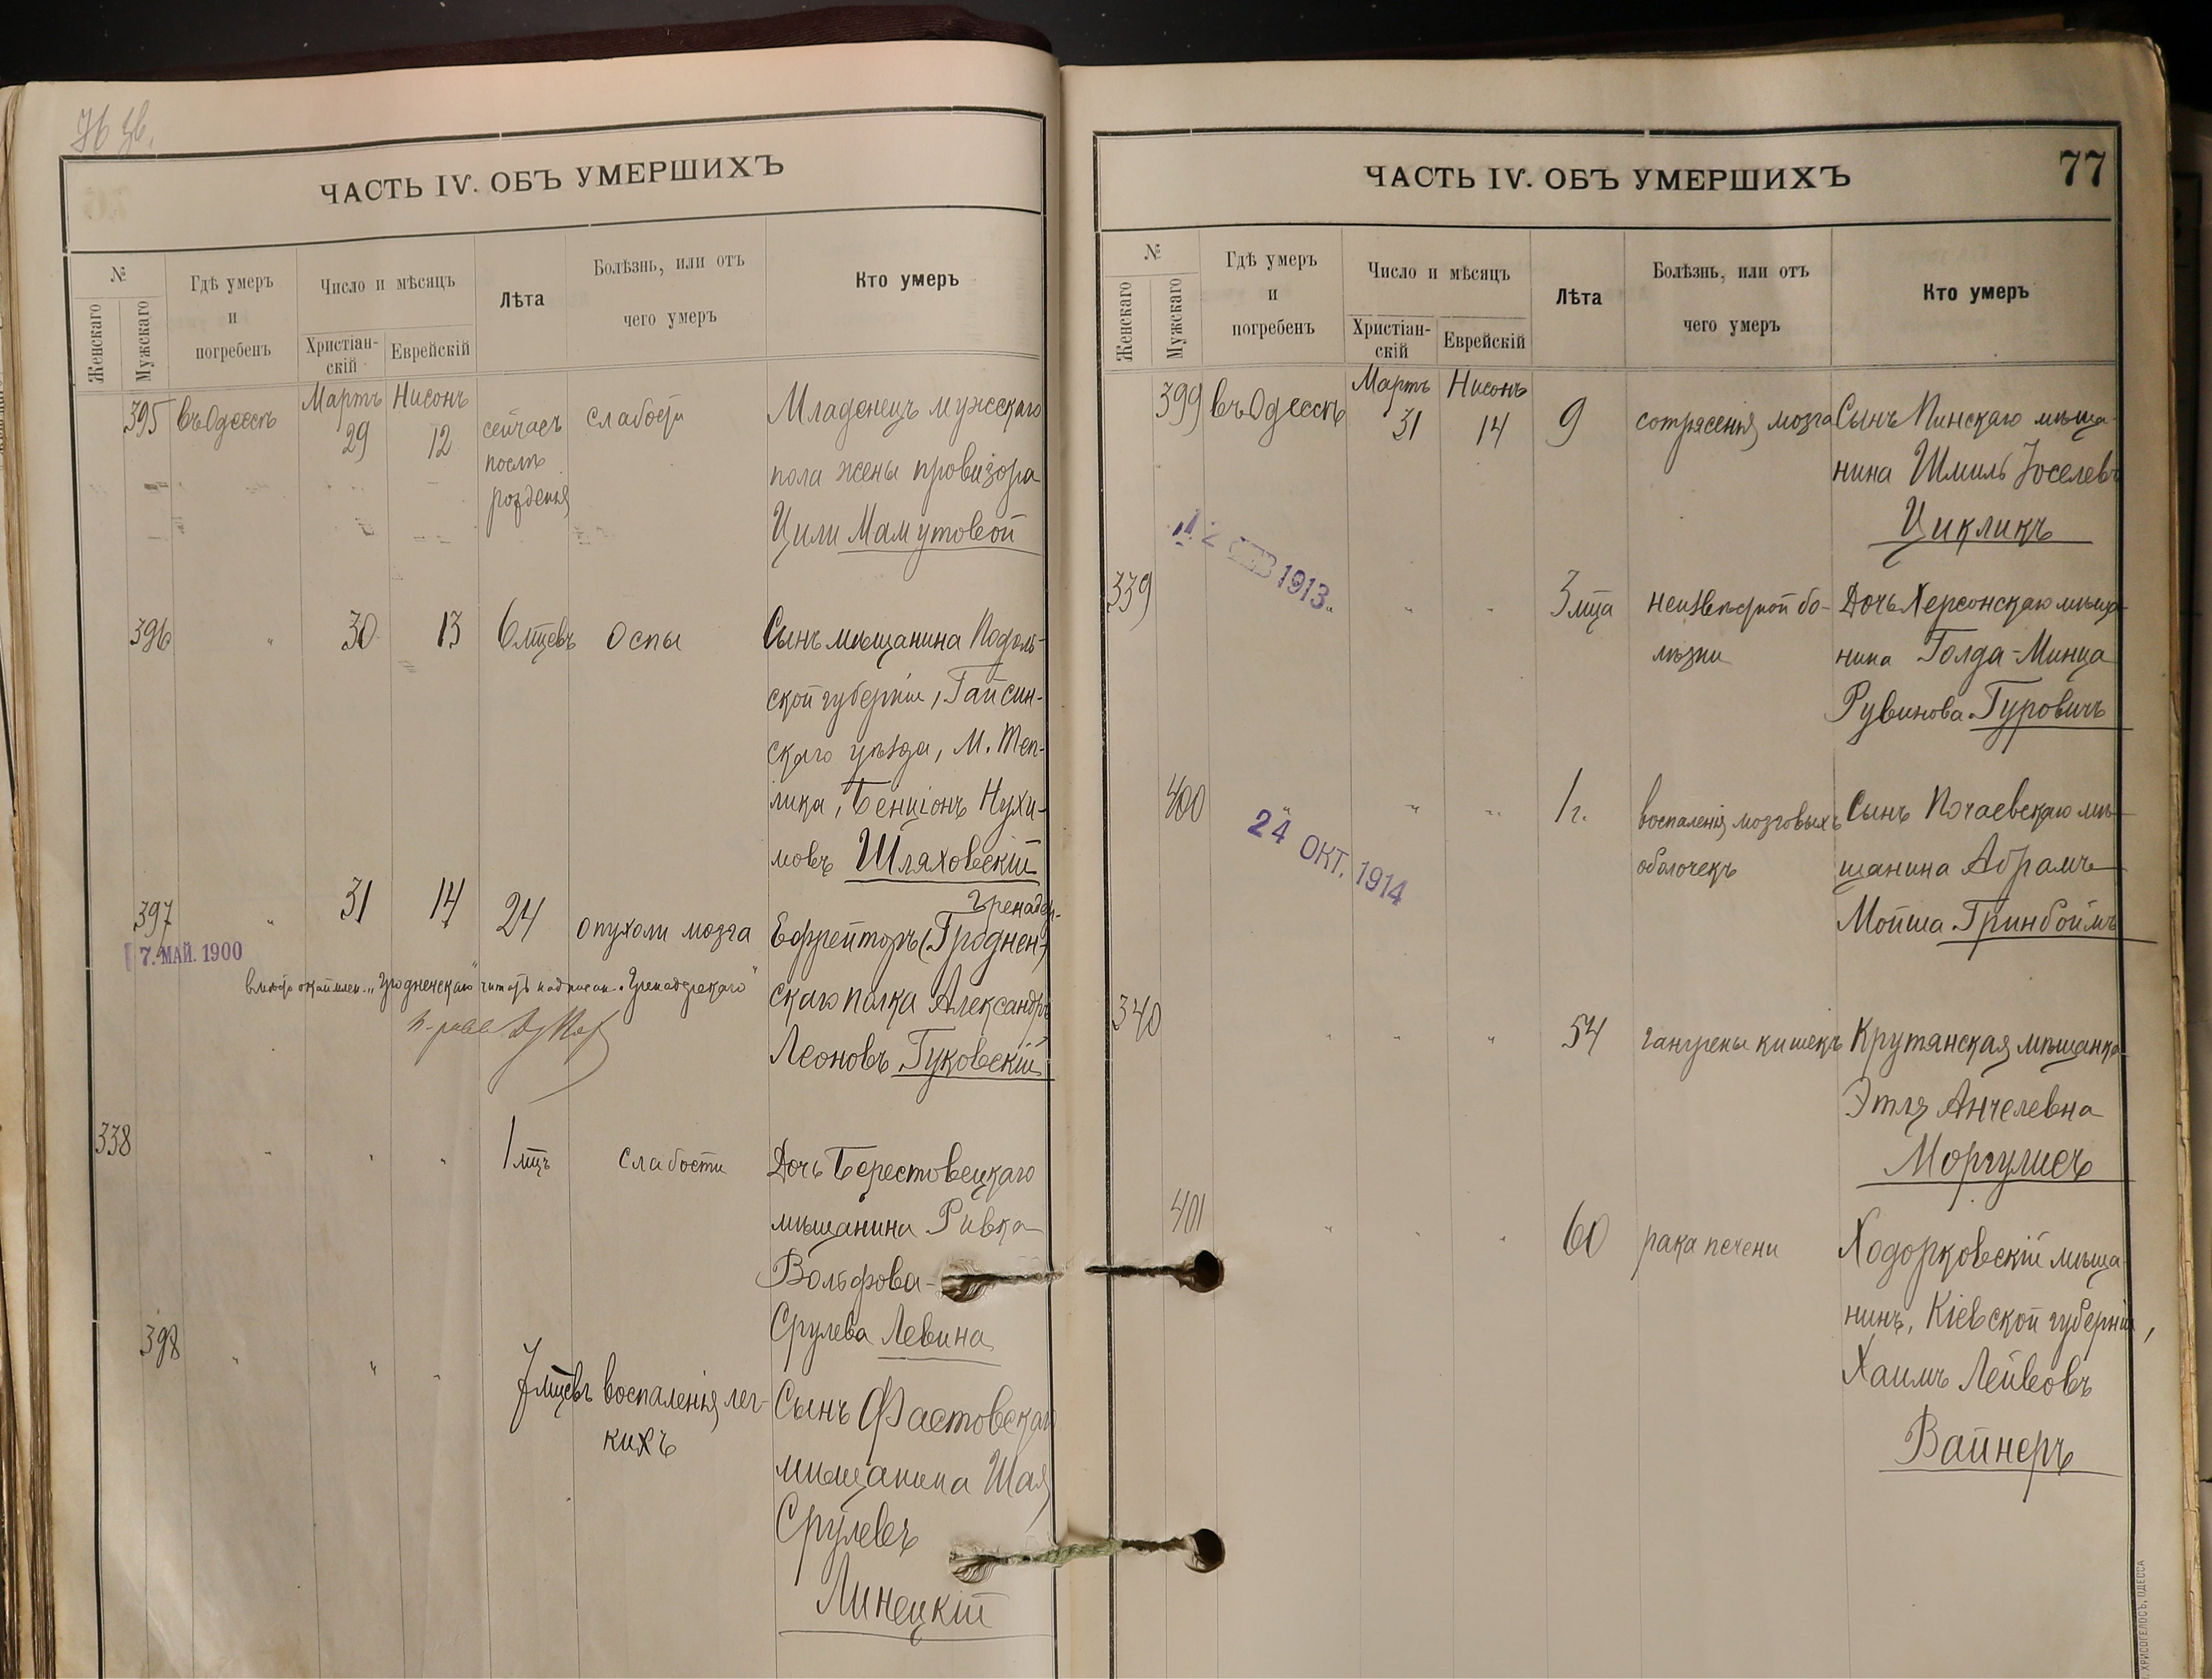 ЧАСТЬ IV. ОБЪ УМЕРШИХЪ
№
Женскаго
Мужскаго
Гдѣ умеръ
и
погребенъ
Число и мѣсяцъ
Христіан-
скій
Еврейскій
Лѣта
Болѣзнь, или отъ
чего умеръ
Кто умеръ
395
въ Одессѣ
Мартъ
29
Нисонъ
12
сейчасъ
послѣ
рожденія
слабости
Младенецъ мужескаго
пола жены провизора
Цили Мамутовой
396
"
30
13
6 мцевъ
Оспы
Сынъ мѣщанина Подоль-
ской губерніи, Гайсин-
скаго уѣзда, М. Теп-
лика, Бенціонъ Нухи-
мовъ Шляховскій
397
7. МАЙ. 1900
"
31
14
24
опухоли мозга
Гренадер-
Ефрейторъ (Гроднен-)
скаго полка Александръ
Леоновъ Гуковскій
"Гродненскаго" читать надписан. "Гренадерскаго"
338
"
"
"
1 мцъ
слабости
Дочь Берестовецкаго
мѣщанина Ривка
Вольфова-
Срулева Левина
398
"
"
"
7 мцевъ
воспаленія лег-
кихъ
Сынъ Фастовскаго
мѣщанина Шая
Срулевъ
Линецкій
ЧАСТЬ IV. ОБЪ УМЕРШИХЪ
77
№
Женскаго
Мужскаго
Гдѣ умеръ
и
погребенъ
Число и мѣсяцъ
Христіан-
скій
Еврейскій
Лѣта
Болѣзнь, или отъ
чего умеръ
Кто умеръ
399
въ Одессѣ
Мартъ
31
Нисонъ
14
9
сотрясенія мозга
Сынъ Пинскаго мѣща-
нина Шмиль Іоселевъ
Цикликъ
1913
339
"
"
"
3 мца
неизвѣстной бо-
лѣзни
Дочь Херсонскаго мѣща-
нина Голда-Минца
Рувинова Гуровичъ
400
"
"
"
1 г.
воспаленія мозговыхъ
оболочекъ
Сынъ Почаевскаго мѣ-
щанина Абрамъ
Мойша Гринбоймъ
24 ОКТ. 1914
340
"
"
"
54
гангрены кишекъ
Крутянская мѣщанка
Этля Анчелевна
Моргулисъ
401
"
"
"
60
рака печени
Ходорковскій мѣща-
нинъ, Кіевской губерніи,
Хаимъ Лейвовъ
Вайнеръ